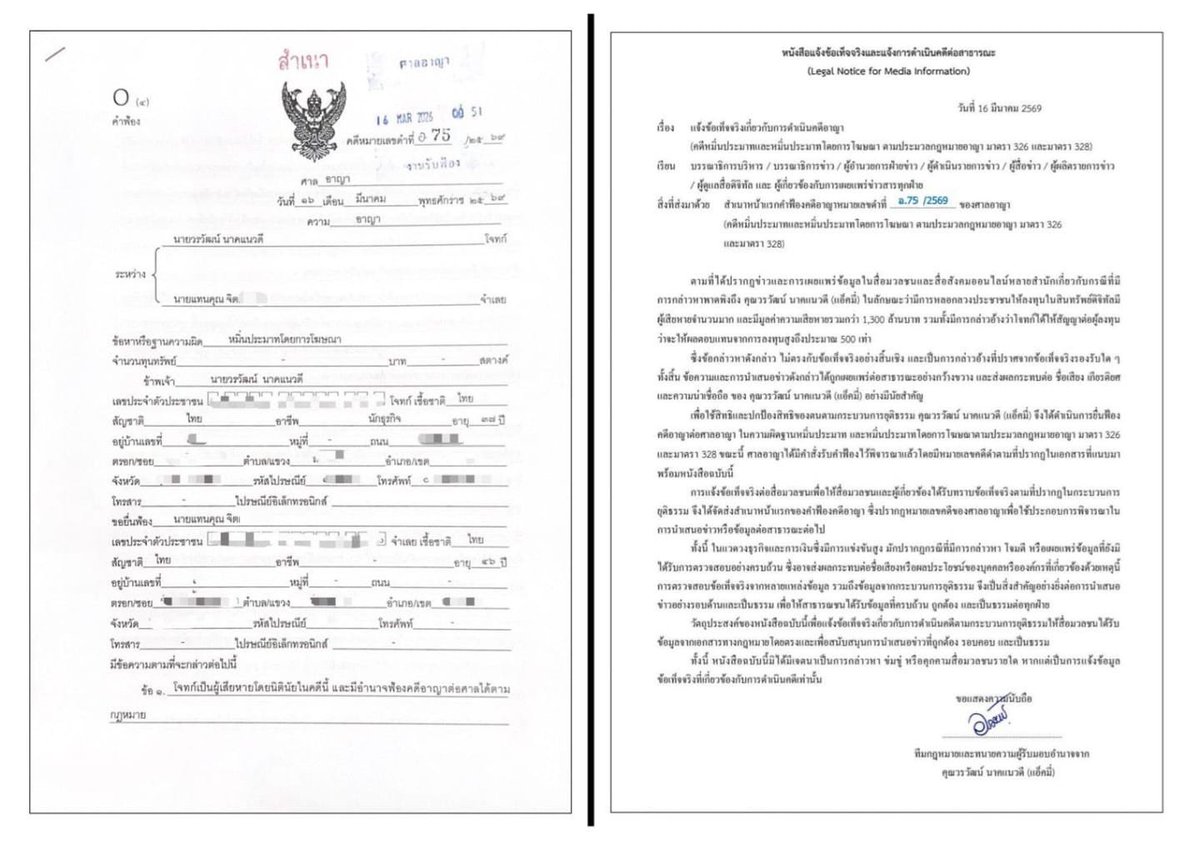 สำเนา
ศาลอาญา
O (๔)
คำฟ้อง
16 MAR 2026
คดีหมายเลขดำที่ อ 75 /๒๕ ๖๙
งานรับฟ้อง
ศาล อาญา
วันที่ ๑๖ เดือน มีนาคม พุทธศักราช ๒๕ ๖๙
ความ อาญา
นายวรวัฒน์ นาคแนวดี โจทก์
ระหว่าง
นายแทนคุณ จิต จำเลย
ข้อหาหรือฐานความผิด หมิ่นประมาทโดยการโฆษณา
จำนวนทุนทรัพย์ - บาท - สตางค์
ข้าพเจ้า นายวรวัฒน์ นาคแนวดี
เลขประจำตัวประชาชน โจทก์ เชื้อชาติ ไทย
สัญชาติ ไทย อาชีพ นักธุรกิจ อายุ ๓๗ ปี
อยู่บ้านเลขที่ หมู่ที่ - ถนน
ตรอก/ซอย ตำบล/แขวง อำเภอ/เขต
จังหวัด รหัสไปรษณีย์ โทรศัพท์
โทรสาร - ไปรษณีย์อิเล็กทรอนิกส์ -
ขอยื่นฟ้อง นายแทนคุณ จิต
เลขประจำตัวประชาชน จำเลย เชื้อชาติ ไทย
สัญชาติ ไทย อาชีพ - อายุ ๔๖ ปี
อยู่บ้านเลขที่ หมู่ที่ - ถนน -
ตรอก/ซอย ตำบล/แขวง อำเภอ/เขต
จังหวัด รหัสไปรษณีย์ - โทรศัพท์ -
โทรสาร - ไปรษณีย์อิเล็กทรอนิกส์ -
มีข้อความตามที่จะกล่าวต่อไปนี้
ข้อ ๑. โจทก์เป็นผู้เสียหายโดยนิตินัยในคดีนี้ และมีอำนาจฟ้องคดีอาญาต่อศาลได้ตาม
กฎหมาย
หนังสือแจ้งข้อเท็จจริงและแจ้งการดำเนินคดีต่อสาธารณะ
(Legal Notice for Media Information)
วันที่ 16 มีนาคม 2569
เรื่อง แจ้งข้อเท็จจริงเกี่ยวกับการดำเนินคดีอาญา
(คดีหมิ่นประมาทและหมิ่นประมาทโดยการโฆษณา ตามประมวลกฎหมายอาญา มาตรา 326 และมาตรา 328)
เรียน บรรณาธิการบริหาร / บรรณาธิการข่าว / ผู้อำนวยการฝ่ายข่าว / ผู้ดำเนินรายการข่าว / ผู้สื่อข่าว / ผู้ผลิตรายการข่าว
/ ผู้ดูแลสื่อดิจิทัล และ ผู้เกี่ยวข้องกับการเผยแพร่ข่าวสารทุกฝ่าย
สิ่งที่ส่งมาด้วย สำเนาหน้าแรกคำฟ้องคดีอาญาหมายเลขดำที่ อ.75 /2569 ของศาลอาญา
(คดีหมิ่นประมาทและหมิ่นประมาทโดยการโฆษณา ตามประมวลกฎหมายอาญา มาตรา 326
และมาตรา 328)
ตามที่ได้ปรากฏข่าวและการเผยแพร่ข้อมูลในสื่อมวลชนและสื่อสังคมออนไลน์หลายสำนักเกี่ยวกับกรณีที่มี
การกล่าวหาพาดพิงถึง คุณวรวัฒน์ นาคแนวดี (แอ็คมี่) ในลักษณะว่ามีการหลอกลวงประชาชนให้ลงทุนในสินทรัพย์ดิจิทัลมี
ผู้เสียหายจำนวนมาก และมีมูลค่าความเสียหายรวมกว่า 1,300 ล้านบาท รวมทั้งมีการกล่าวอ้างว่าโจทก์ได้ให้สัญญาต่อผู้ลงทุน
ว่าจะให้ผลตอบแทนจากการลงทุนสูงถึงประมาณ 500 เท่า
ซึ่งข้อกล่าวหาดังกล่าว ไม่ตรงกับข้อเท็จจริงอย่างสิ้นเชิง และเป็นการกล่าวอ้างที่ปราศจากข้อเท็จจริงรองรับใด ๆ
ทั้งสิ้น ข้อความและการนำเสนอข่าวดังกล่าวได้ถูกเผยแพร่ต่อสาธารณะอย่างกว้างขวาง และส่งผลกระทบต่อ ชื่อเสียง เกียรติยศ
และความน่าเชื่อถือ ของ คุณวรวัฒน์ นาคแนวดี (แอ็คมี่) อย่างมีนัยสำคัญ
เพื่อใช้สิทธิและปกป้องสิทธิของตนตามกระบวนการยุติธรรม คุณวรวัฒน์ นาคแนวดี (แอ็คมี่) จึงได้ดำเนินการยื่นฟ้อง
คดีอาญาต่อศาลอาญา ในความผิดฐานหมิ่นประมาท และหมิ่นประมาทโดยการโฆษณาตามประมวลกฎหมายอาญา มาตรา 326
และมาตรา 328 ขณะนี้ ศาลอาญาได้มีคำสั่งรับคำฟ้องไว้พิจารณาแล้วโดยมีหมายเลขคดีดำตามที่ปรากฏในเอกสารที่แนบมา
พร้อมหนังสือฉบับนี้
การแจ้งข้อเท็จจริงต่อสื่อมวลชนเพื่อให้สื่อมวลชนและผู้เกี่ยวข้องได้รับทราบข้อเท็จจริงตามที่ปรากฏในกระบวนการ
ยุติธรรม จึงได้จัดส่งสำเนาหน้าแรกของคำฟ้องคดีอาญา ซึ่งปรากฏหมายเลขคดีของศาลอาญาเพื่อใช้ประกอบการพิจารณาใน
การนำเสนอข่าวหรือข้อมูลต่อสาธารณะต่อไป
ทั้งนี้ ในแวดวงธุรกิจและการเงินซึ่งมีการแข่งขันสูง มักปรากฏกรณีที่มีการกล่าวหา โจมตี หรือเผยแพร่ข้อมูลที่ยังมิ
ได้รับการตรวจสอบอย่างครบถ้วน ซึ่งอาจส่งผลกระทบต่อชื่อเสียงหรือผลประโยชน์ของบุคคลหรือองค์กรที่เกี่ยวข้องด้วยเหตุนี้
การตรวจสอบข้อเท็จจริงจากหลายแหล่งข้อมูล รวมถึงข้อมูลจากกระบวนการยุติธรรม จึงเป็นสิ่งสำคัญอย่างยิ่งต่อการนำเสนอ
ข่าวอย่างรอบด้านและเป็นธรรม เพื่อให้สาธารณชนได้รับข้อมูลที่ครบถ้วน ถูกต้อง และเป็นธรรมต่อทุกฝ่าย
วัตถุประสงค์ของหนังสือฉบับนี้เพื่อแจ้งข้อเท็จจริงเกี่ยวกับการดำเนินคดีตามกระบวนการยุติธรรมให้สื่อมวลชนได้รับ
ข้อมูลจากเอกสารทางกฎหมายโดยตรงและเพื่อสนับสนุนการนำเสนอข่าวที่ถูกต้อง รอบคอบ และเป็นธรรม
ทั้งนี้ หนังสือฉบับนี้มิได้มีเจตนาเป็นการกล่าวหา ข่มขู่ หรือคุกคามสื่อมวลชนรายใด หากแต่เป็นการแจ้งข้อมูล
ข้อเท็จจริงที่เกี่ยวข้องกับการดำเนินคดีเท่านั้น
ขอแสดงความนับถือ
ทีมกฎหมายและทนายความผู้รับมอบอำนาจจาก
คุณวรวัฒน์ นาคแนวดี (แอ็คมี่)